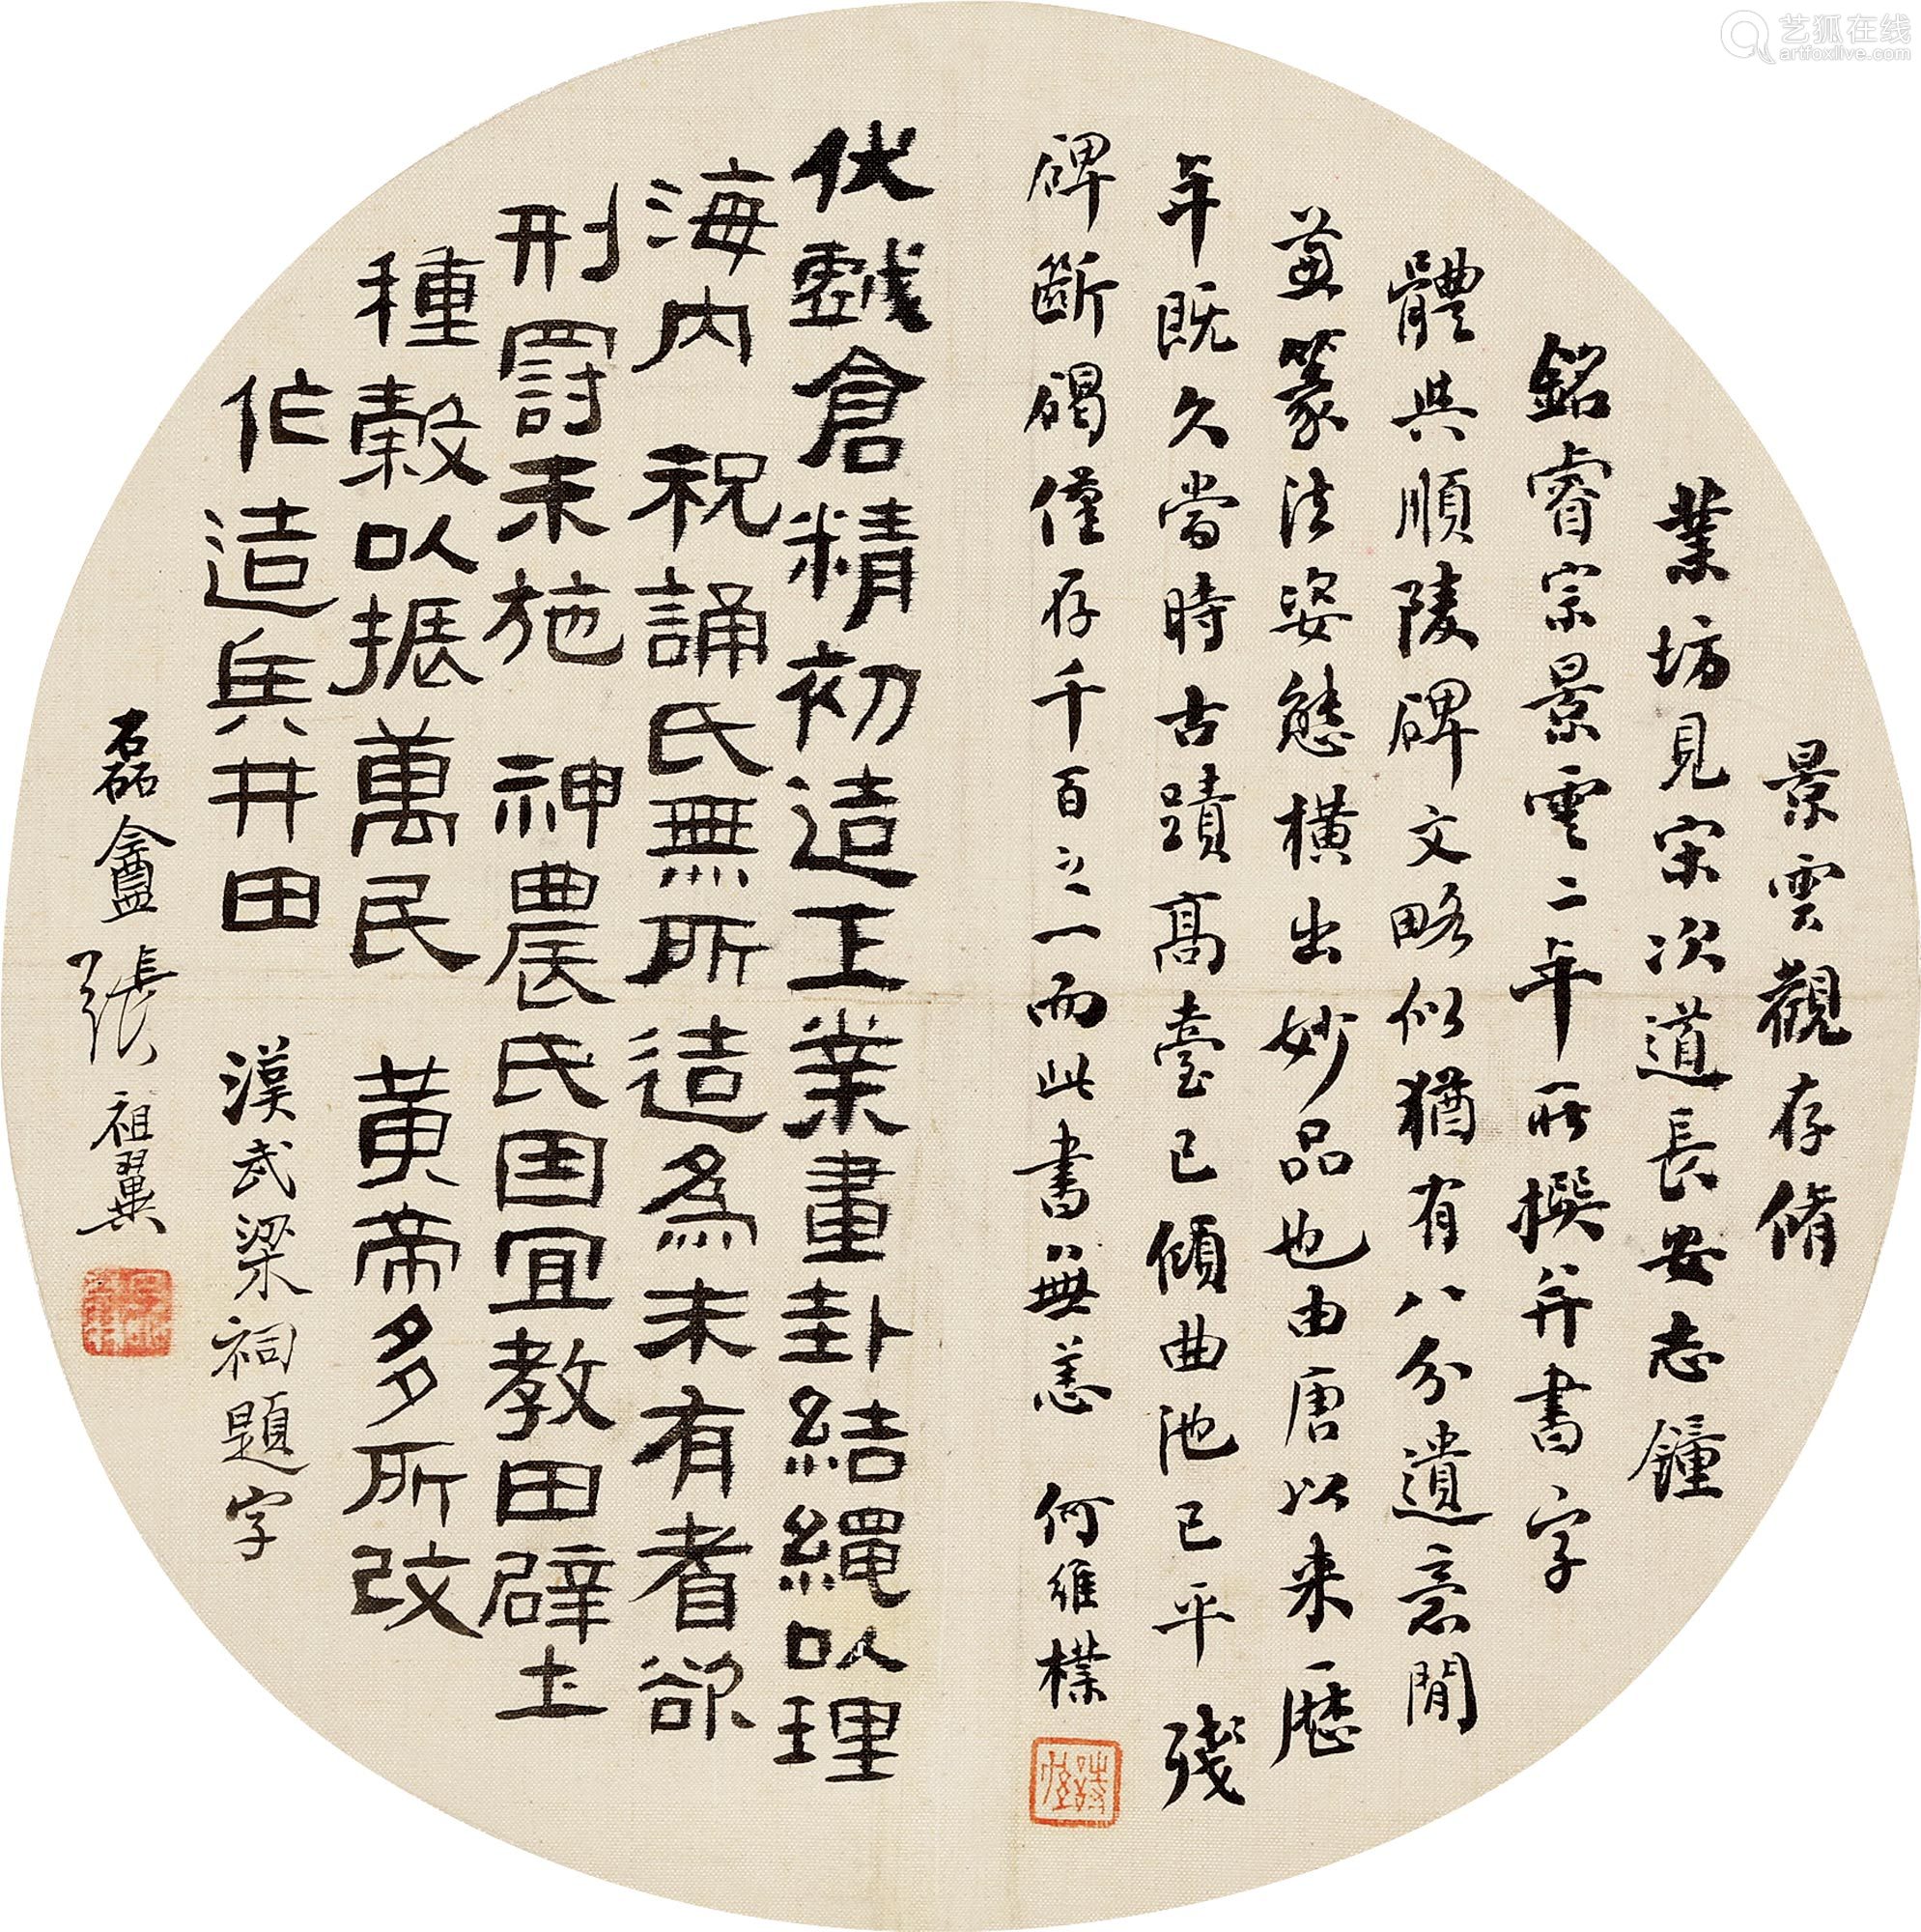 景雲觀存脩
業坊見宋次道長安志鐘
銘睿宗景雲二年所撰并書字
體與順陵碑文略似猶有八分遺意間
兼篆法姿態橫出妙品也由唐以来歷
年既久當時古蹟高臺已傾曲池已平殘
碑斷碣僅存千百之一而此書無恙 何維樸
伏戲倉精初造王業畫卦結繩以理
海內 祝誦氏無所造為未有耆欲
刑罰未施 神農氏因宜教田辟土
種穀以振萬民 黄帝多所改
作造兵井田 漢武梁祠題字
磊盦張祖翼
艺狐在线
artfoxlive.com